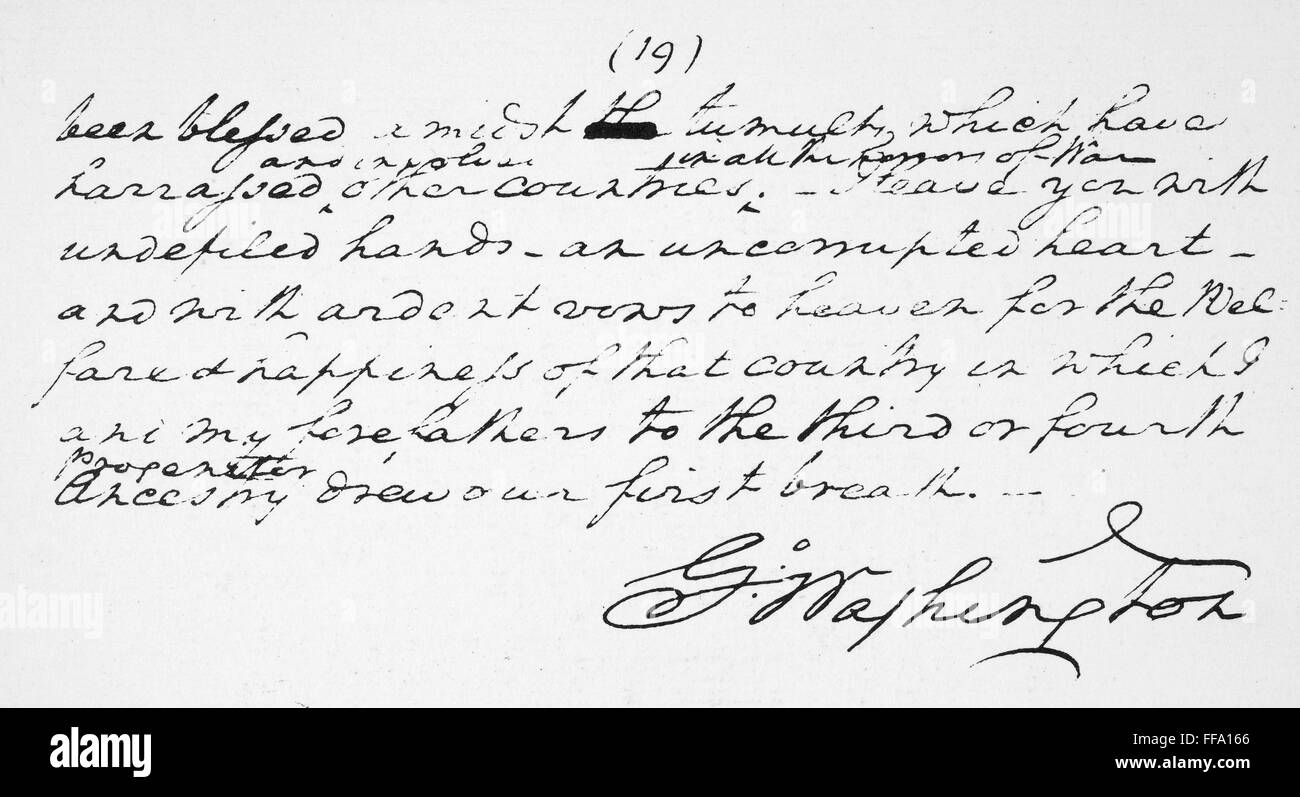 (19)
been blessed amidst the tumults, which have
and involved in all the horrors of War
harrassed other countries. – I leave you with
undefiled hands – an uncorrupted heart –
and with ardent vows to heaven for the Wel-
fare & happiness of that country in which I
and my forefathers to the third or fourth
progenitor
Ancestry drew our first breath. –
G:o Washington
alamy
alamy
Image ID: FFA166
www.alamy.com